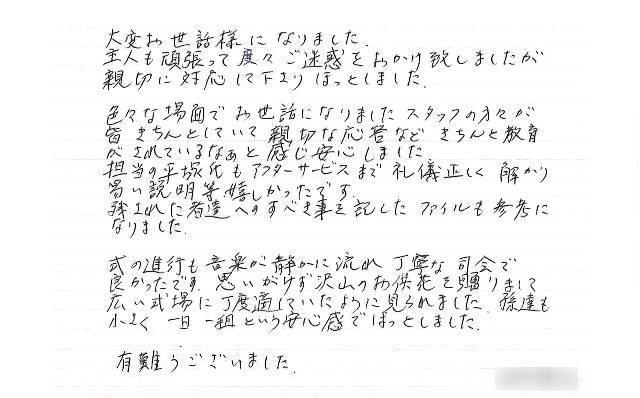 大変お世話様になりました.
主人も頑張って度々ご迷惑をおかけ致しましたが
親切に対応して下さりほっとしました.
色々な場面でお世話になりましたスタッフの方々が
皆きちんとしていて親切な応答などきちんと教育
がされているなぁと感じ安心しました
担当の平塚氏もアフターサービスまで礼儀正しく解かり
易い説明等嬉しかったです.
残された者達へのすべき事を記したファイルも参考に
なりました.
式の進行も音楽が静かに流れ丁寧な司会で
良かったです.思いがけず沢山のお供花を賜りまして
広い式場に丁度適していたように見られました.孫達も
小さく一日一組という安心感でほっとしました.
有難うございました.